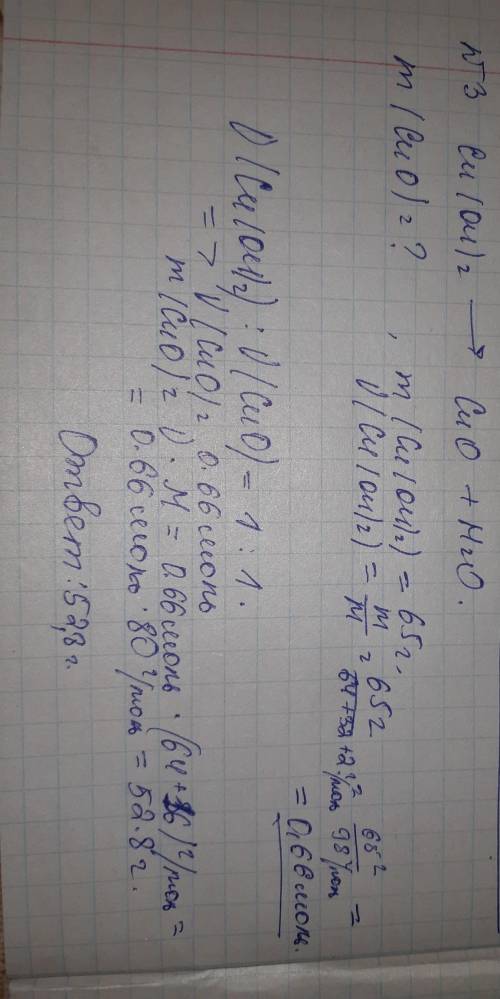 №3 Cu(OH)₂ ⟶ CuO + H₂O.
m(CuO)=? , m(Cu(OH)₂) = 65г,
ν(Cu(OH)₂) = m/M = 65г/64+32+2 г/моль = 65г/98г/моль =
= 0,66 моль.
ν(Cu(OH)₂) : ν(CuO) = 1 : 1.
=> ν(CuO) = 0.66 моль
m(CuO) = ν · M = 0.66 моль · (64+16) г/моль =
= 0.66 моль · 80 г/моль = 52.8г.
Ответ: 52,8г.